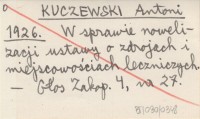 KUCZEWSKI Antoni
1926. W sprawie noweli-
zacji ustawy o zdrojach i
miejscowościach leczniczych.
— Głos Zakop. 4, na 27.